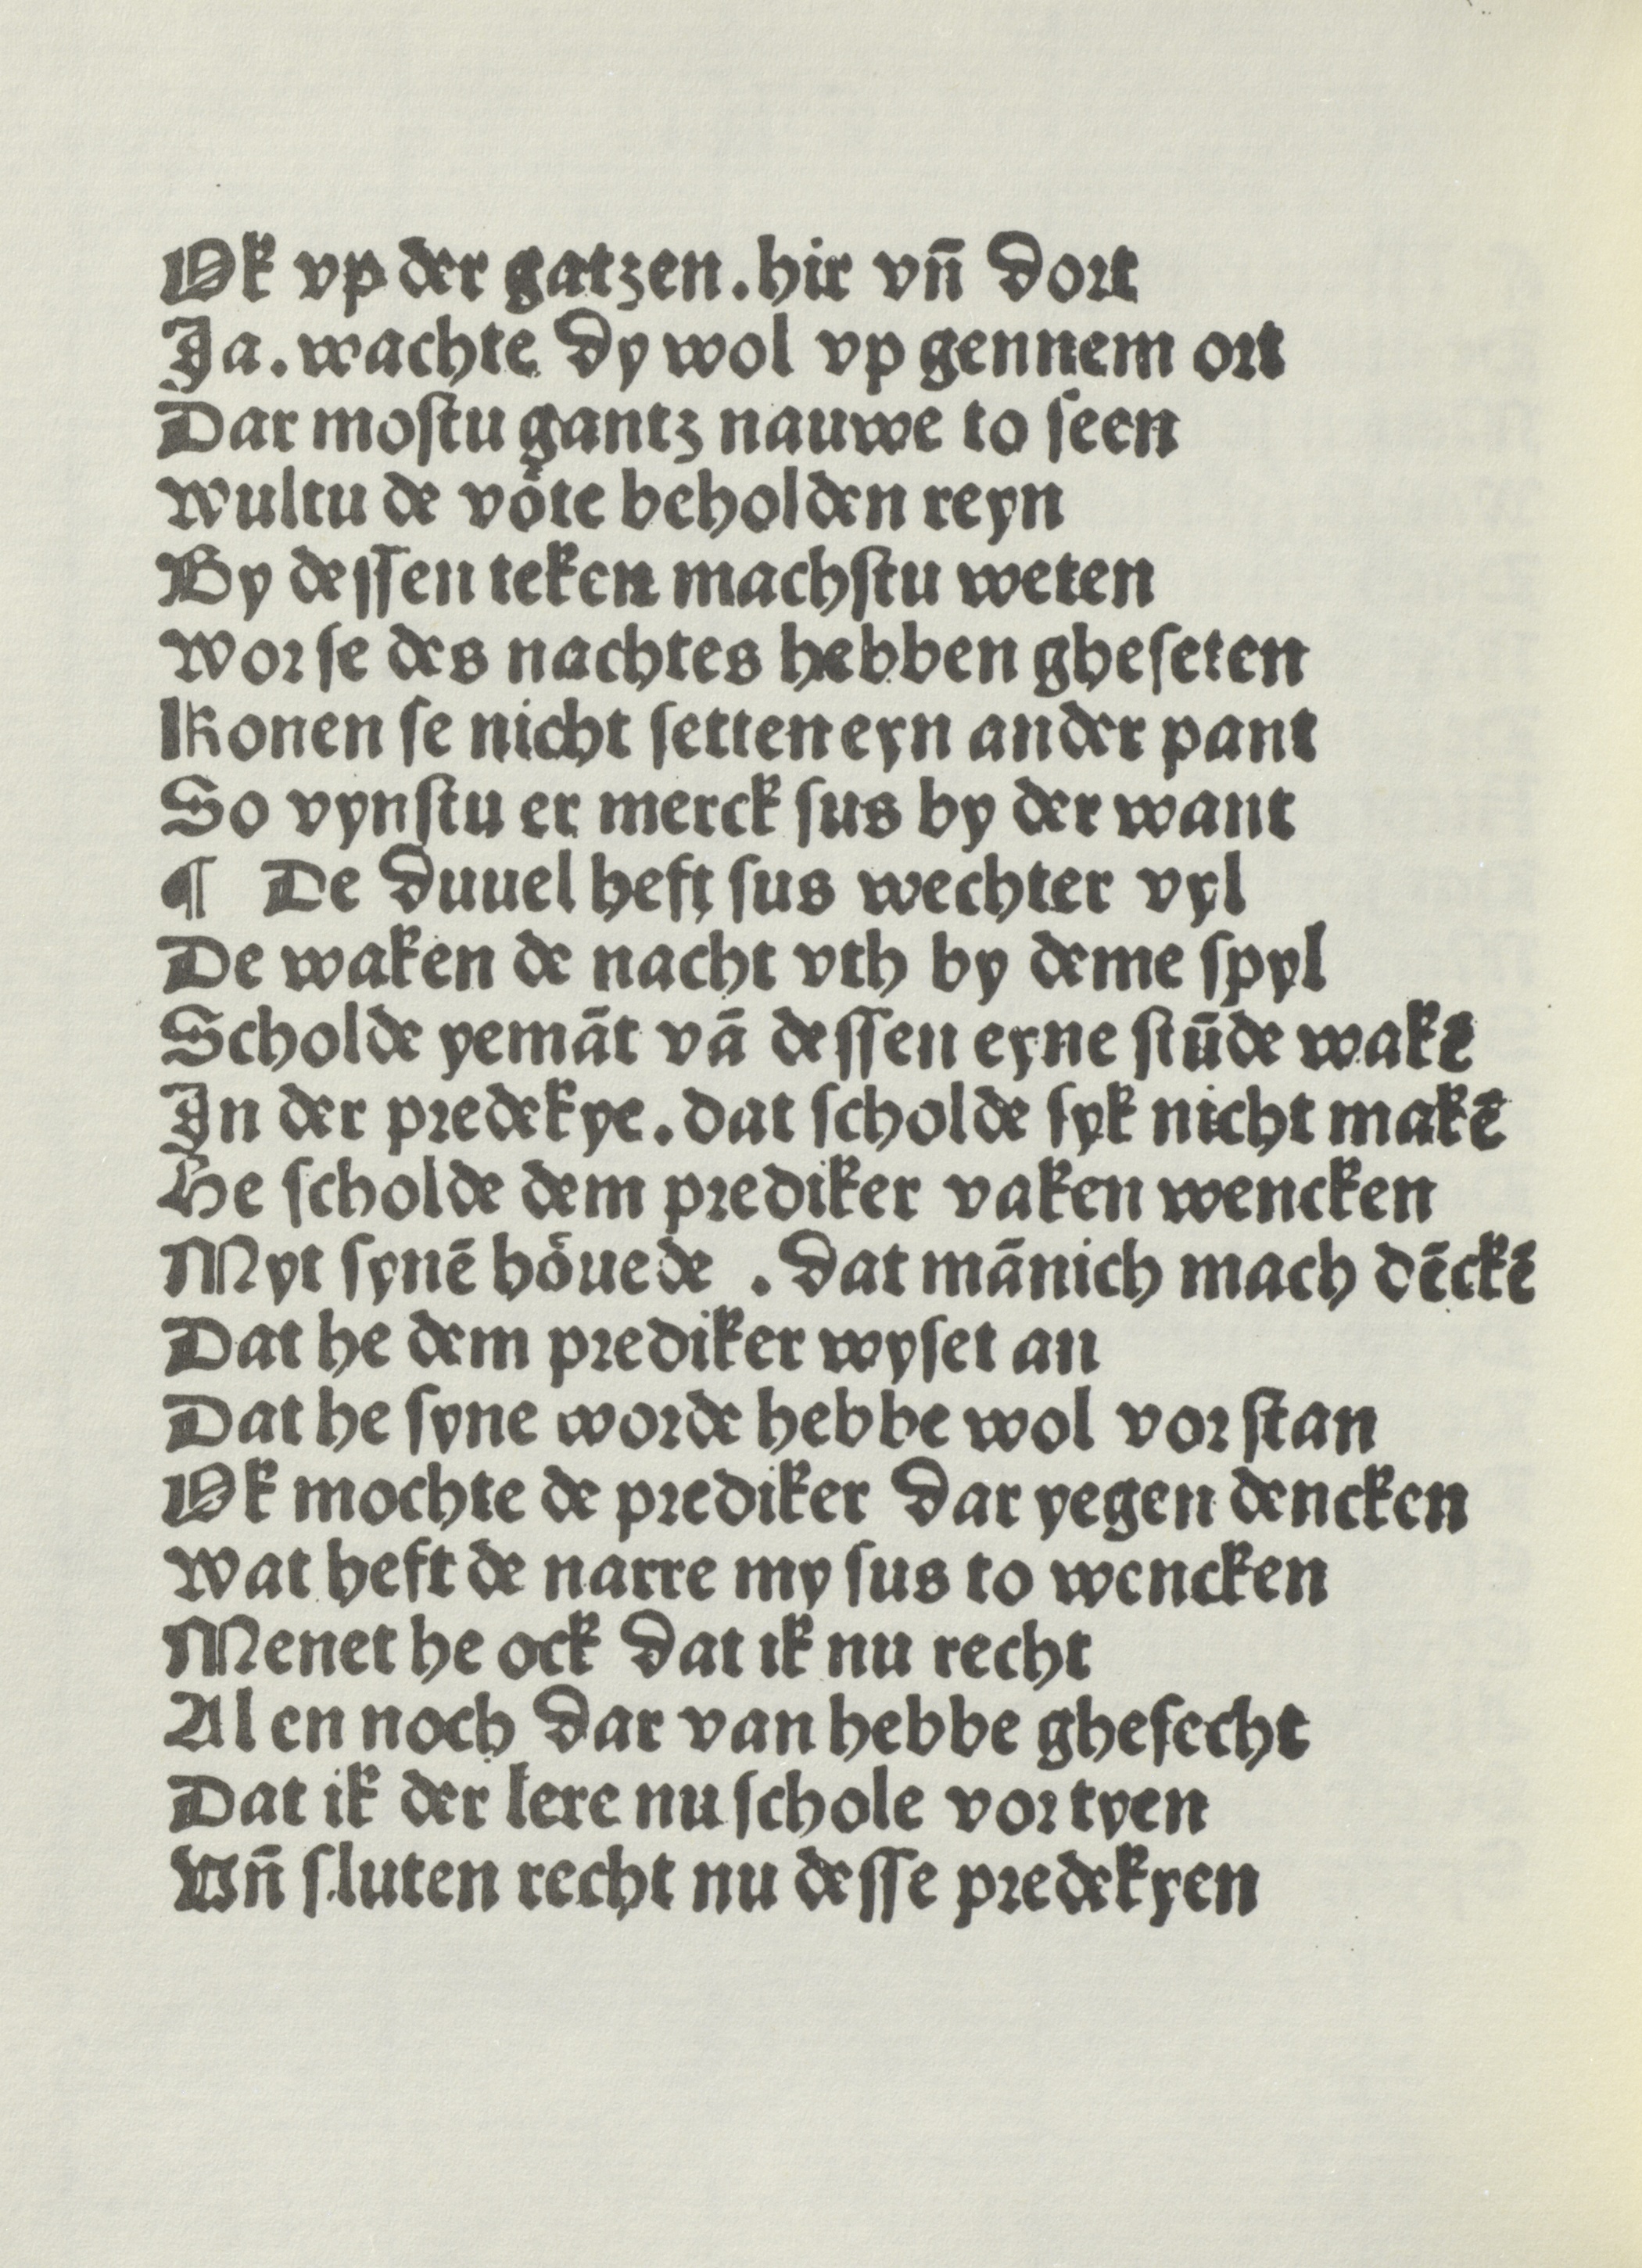 Ok vp der gatzen.hir vn̄ dort
Ja.wachte dy wol vp gennem ort
Dar moſtu gantz nauwe to ſeen
wultu de voͤte beholden reyn
By deſſen teken machſtu weten
wor ſe des nachtes hebben gheſeten
Konen ſe nicht ſetten eyn ander pant
So vynſtu er merck ſus by der want
¶ De duuel heft ſus wechter vyl
De waken de nacht vth by deme ſpyl
Scholde yemāt vā deſſen eyne ſtūde wakē
In der predekye.dat ſcholde ſyk nicht makē
He ſcholde dem prediker vaken wencken
Myt ſynē hoͤuede . dat mānich mach dēckē
Dat he dem prediker wyſet an
Dat he ſyne worde hebbe wol vorſtan
Ok mochte de prediker dar yegen dencken
wat heft de narre my ſus to wencken
Menet he ock dat ik nu recht
Al en noch dar van hebbe gheſecht
Dat ik der lere nu ſchole vortyen
Vn̄ ſluten recht nu deſſe predekyen